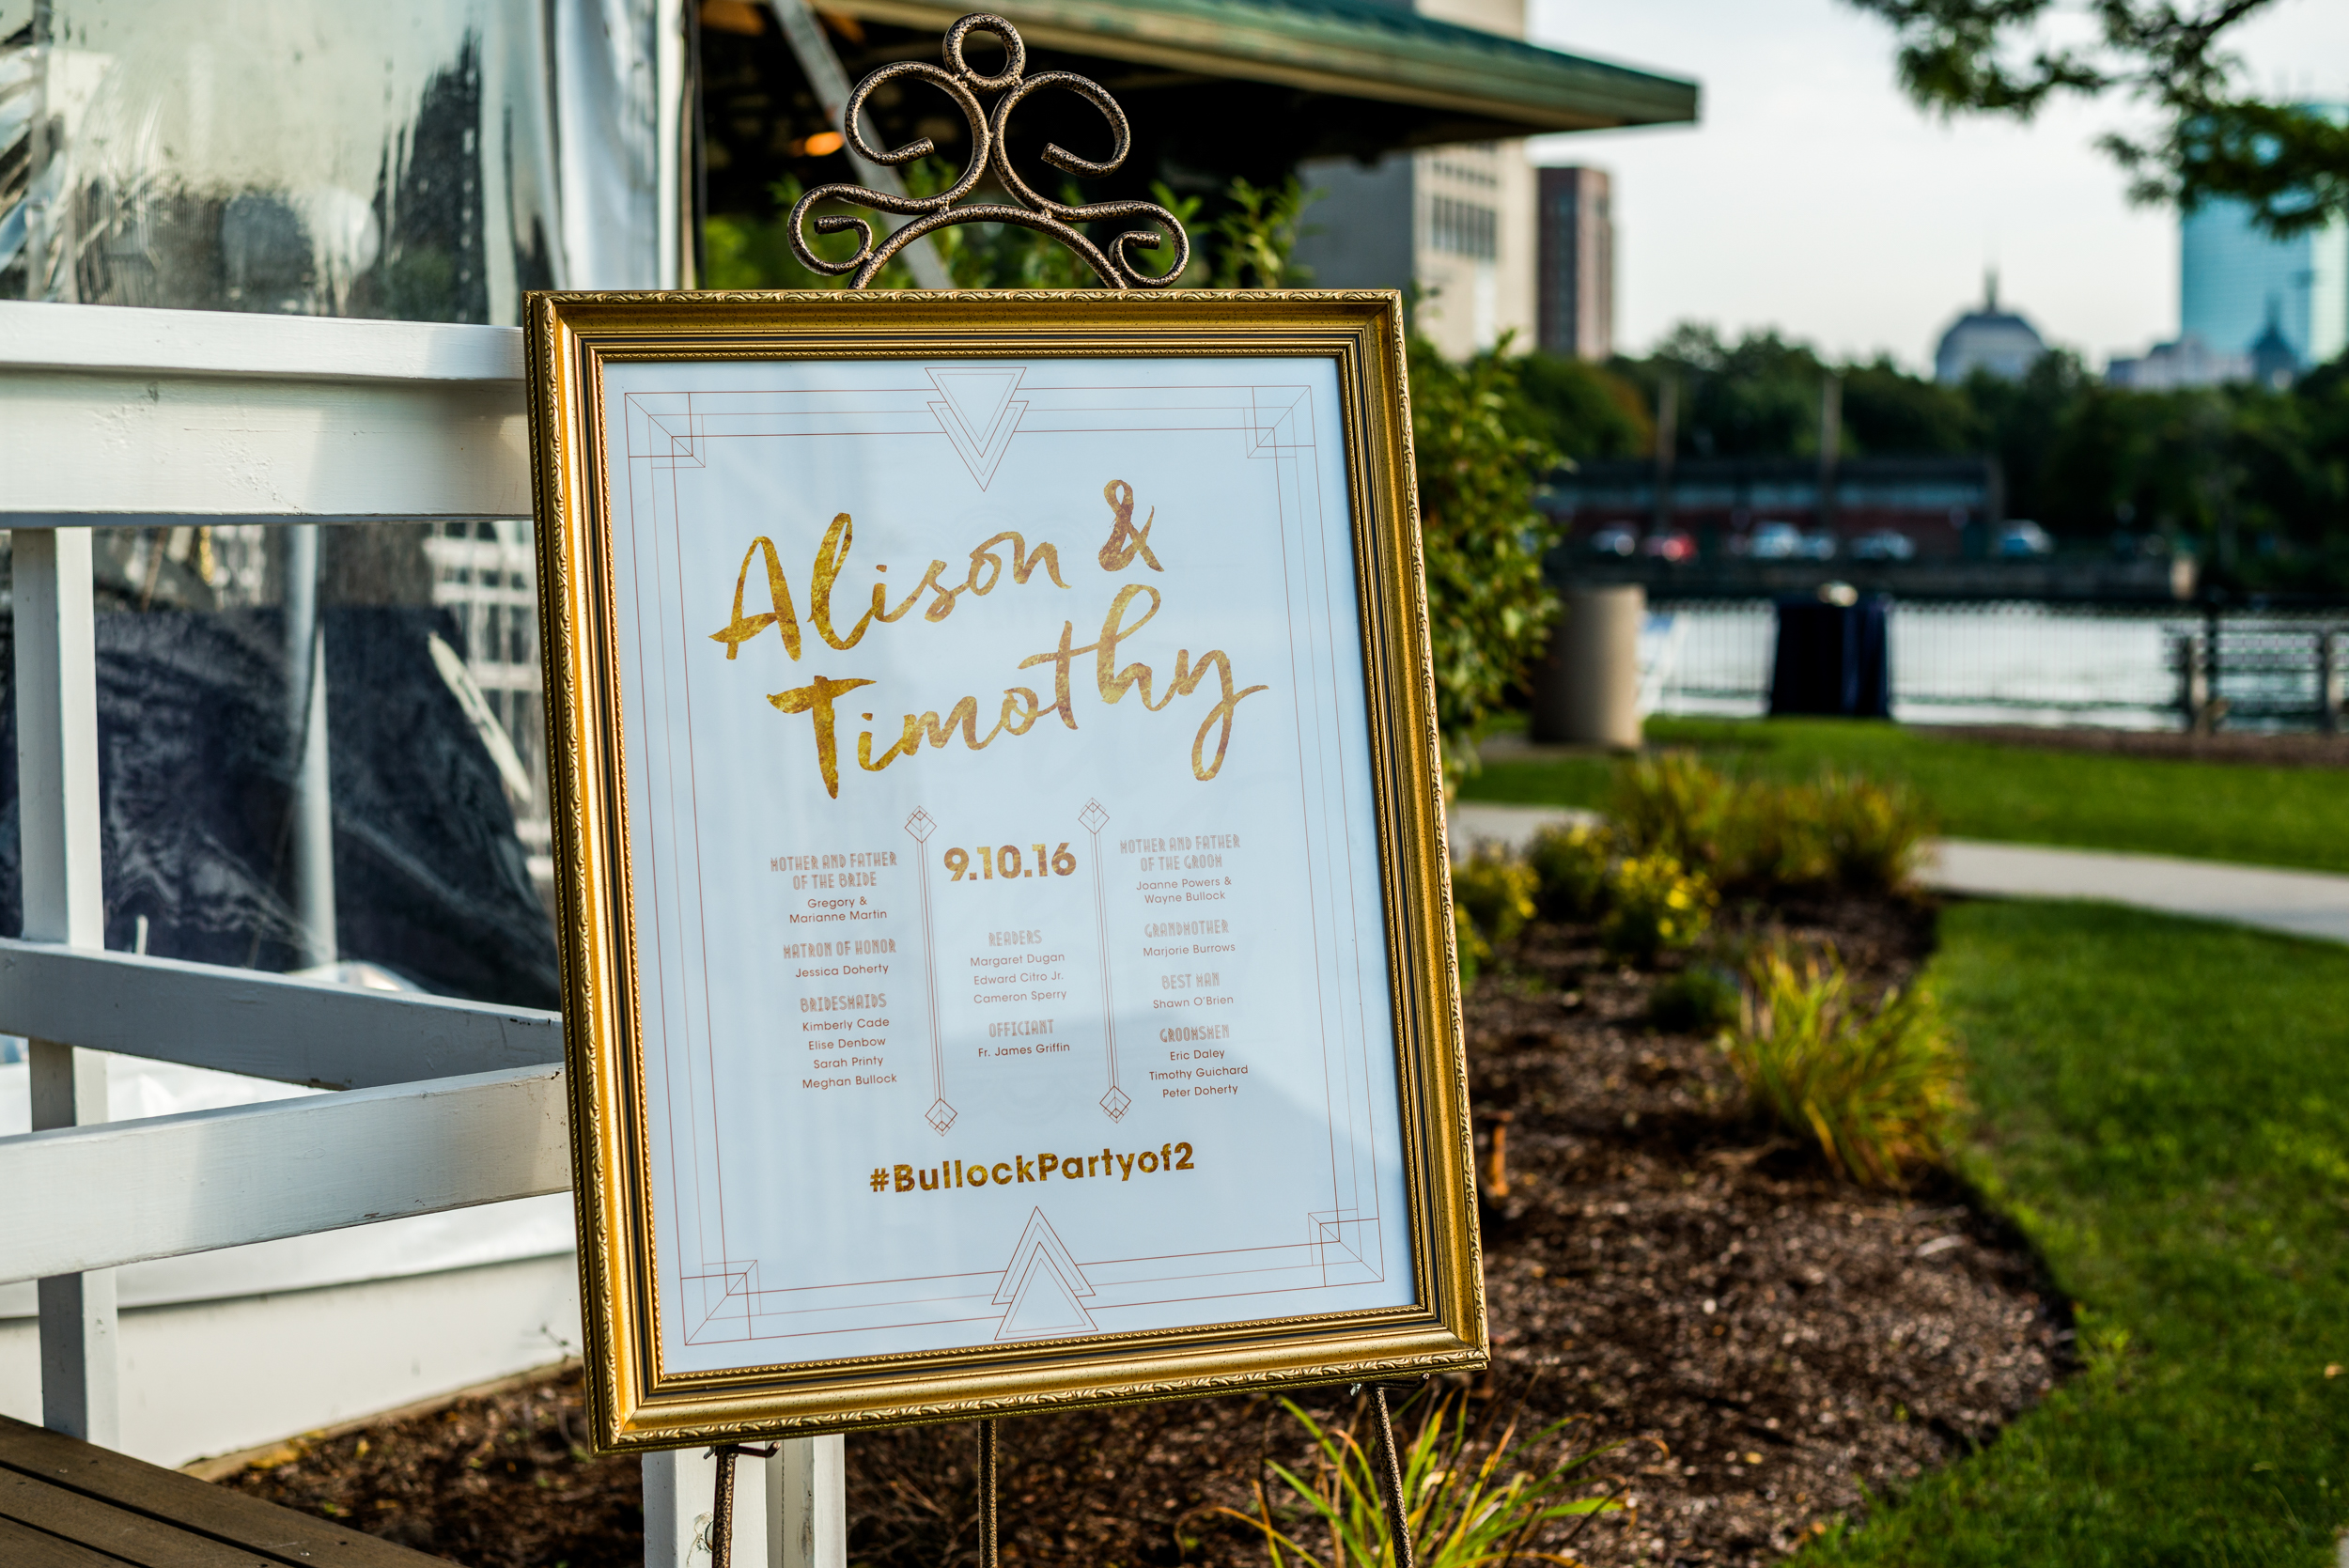 Alison &
Timothy
MOTHER AND FATHER
OF THE BRIDE
Gregory &
Marianne Martin
MATRON OF HONOR
Jessica Doherty
BRIDESMAIDS
Kimberly Cade
Elise Denbow
Sarah Printy
Meghan Bullock
9.10.16
READERS
Margaret Dugan
Edward Citro Jr.
Cameron Sperry
OFFICIANT
Fr. James Griffin
MOTHER AND FATHER
OF THE GROOM
Joanne Powers &
Wayne Bullock
GRANDMOTHER
Marjorie Burrows
BEST MAN
Shawn O'Brien
GROOMSMEN
Eric Daley
Timothy Guichard
Peter Doherty
#BullockPartyof2